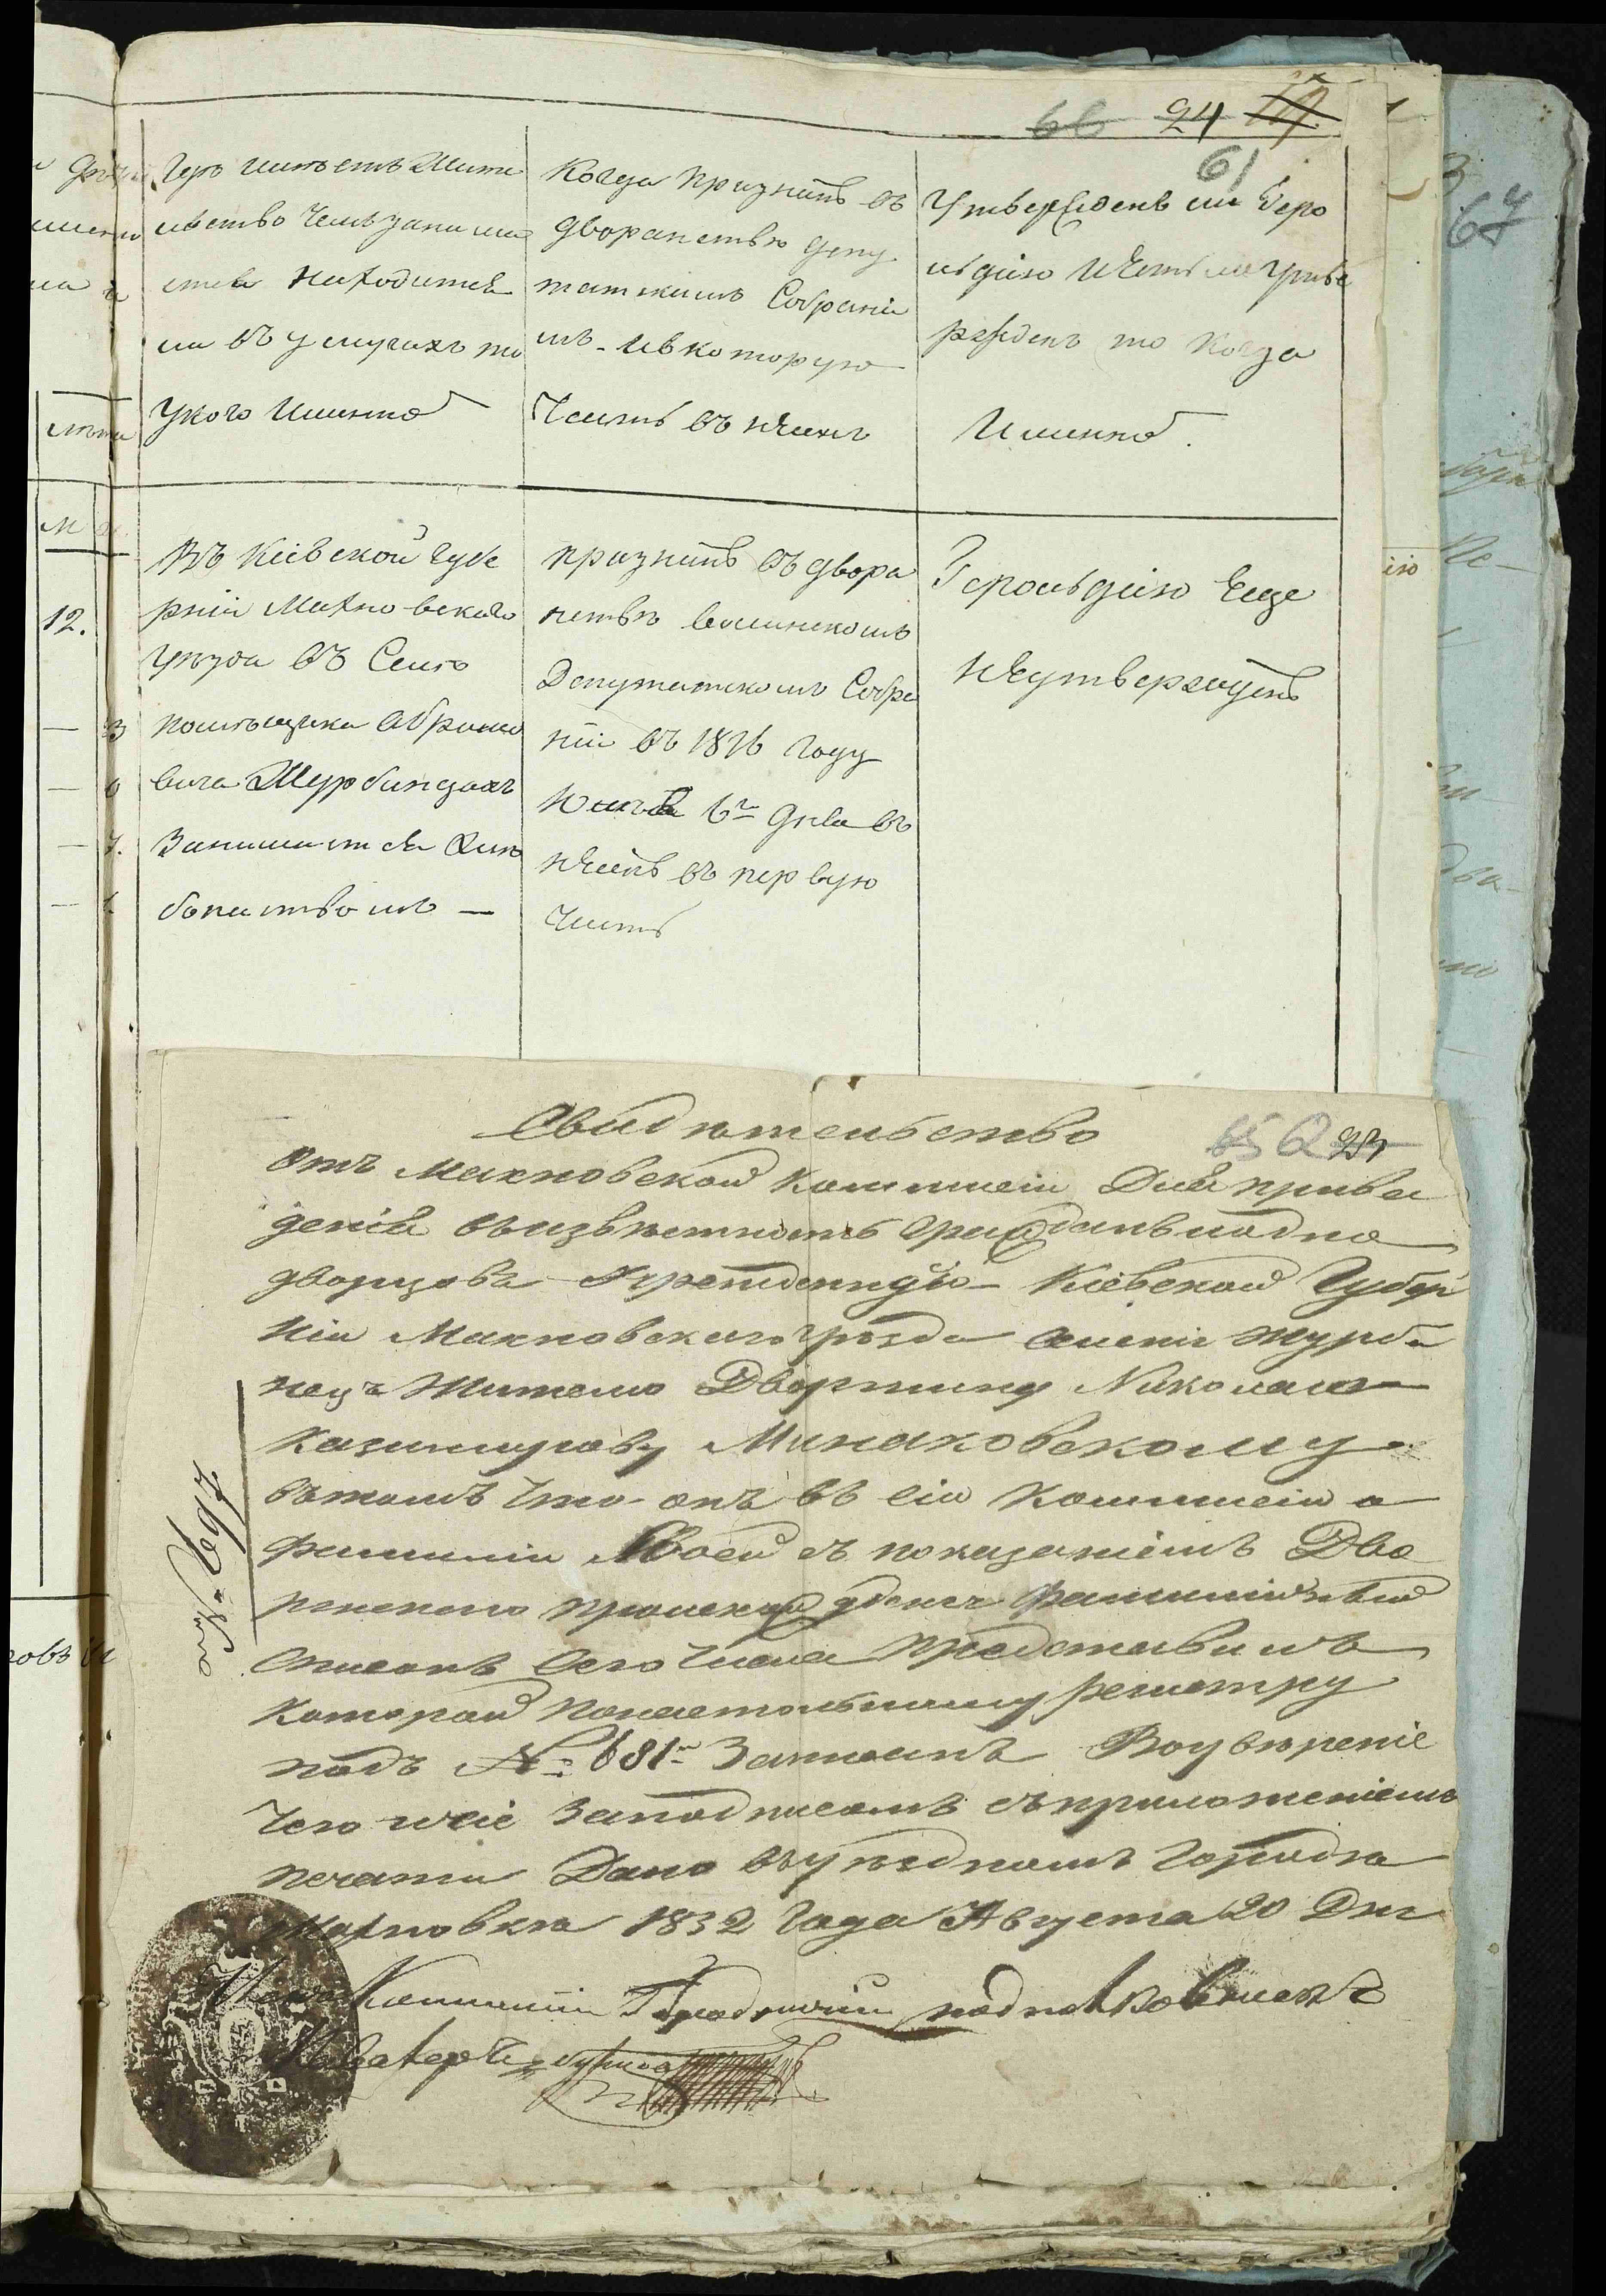 66 24
61
67
Гдѣ имѣетъ Жите
льство чемъ занима
ется находится
ли въ услугахъ то
у кого Имянно
Когда признанъ въ
дворанствѣ депу
татскимъ Собрані
мъ и въ которую
Часть внесенъ
Утвержденъ ли Геро
льдіею и естьли утве
ржденъ то когда
Имянно.
лѣта
м
12.
3
6
7.
Въ Кіевской губе
рніи Махновского
уѣзда въ Селѣ
помѣщика Абрамо
вича Журбинцахъ
Занимается Хлѣ
бопаствомъ —
признанъ въ двора
нствѣ волинскомъ
Депутатскомъ Собра
ніи въ 1816 году
6го дня въ
несенъ въ первую
Часть
Герольдіею Еще
неутвержденъ
Свидѣтельство
65 23
Отъ Махновской Коммисіи Для приве
денія въ извѣстность гражданъ и одно
дворцовъ Кіевской Губер
ніи Махновского уѣзда Селенія Журби
нецъ Жителю Дворянину Николаю
Казимирову Минаковскому
въ томъ что онъ въ сію Коммисію о
фамиліи Своей съ показаніемъ Дво
ранского происхожденія фамильный
Списокъ сего числа представилъ
которой понастольному регистру
подъ №: 681м Записанъ Воувѣреніе
чего и сіе Заподписомъ съ приложеніемъ
печати Дано въ уѣздномъ городѣ
Махновкѣ 1832 года Августа 20 Дня
№ 697
Членъ Коммисіи Городничій подполковникъ
Кавалеръ